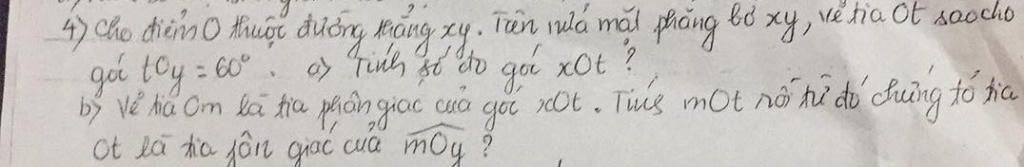 4) Cho điểm O thuộc đường thẳng xy. Trên nửa mặt phẳng bờ xy, vẽ tia Ot sao cho
góc tOy = 60°. a) Tính số đo góc xOt?
b) Vẽ tia Om là tia phân giác của góc xOt. Tính mOt rồi từ đó chứng tỏ tia
Ot là tia phân giác của mOy?